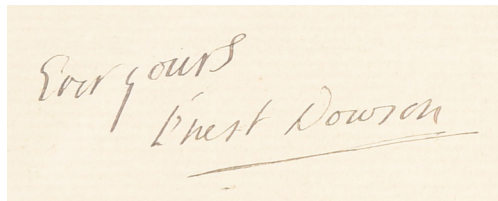 Ever yours
Ernest Dowson